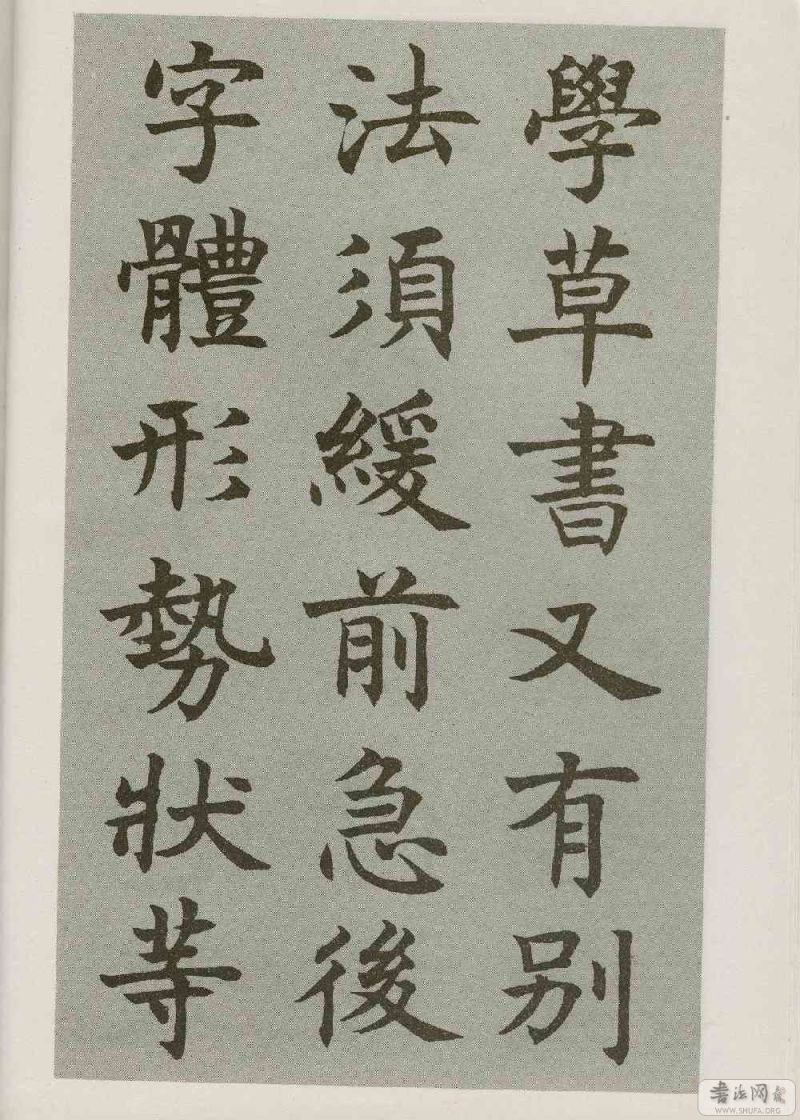 學草書又有别
法須緩前急後
字體形勢狀等
書法网
WWW.SHUFA.ORG